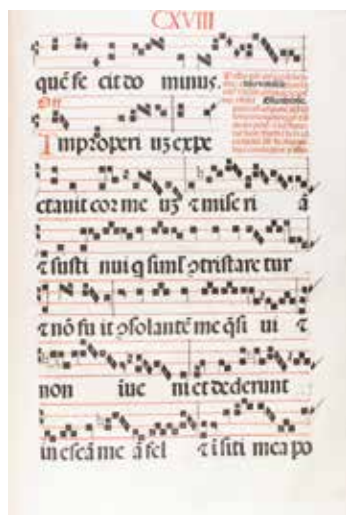 CXVIII
quē fe cit do minus.
Off
Improperi uʒ expe
ctauit cor me uʒ ⁊ mise ri ā
⁊ susti nui q simƚ ꝯtristare tur
⁊ nō fu it ꝯsolantē me q̄si ui ⁊
non iue ni et dederunt
in escā me ā fel ⁊ ī siti mea po